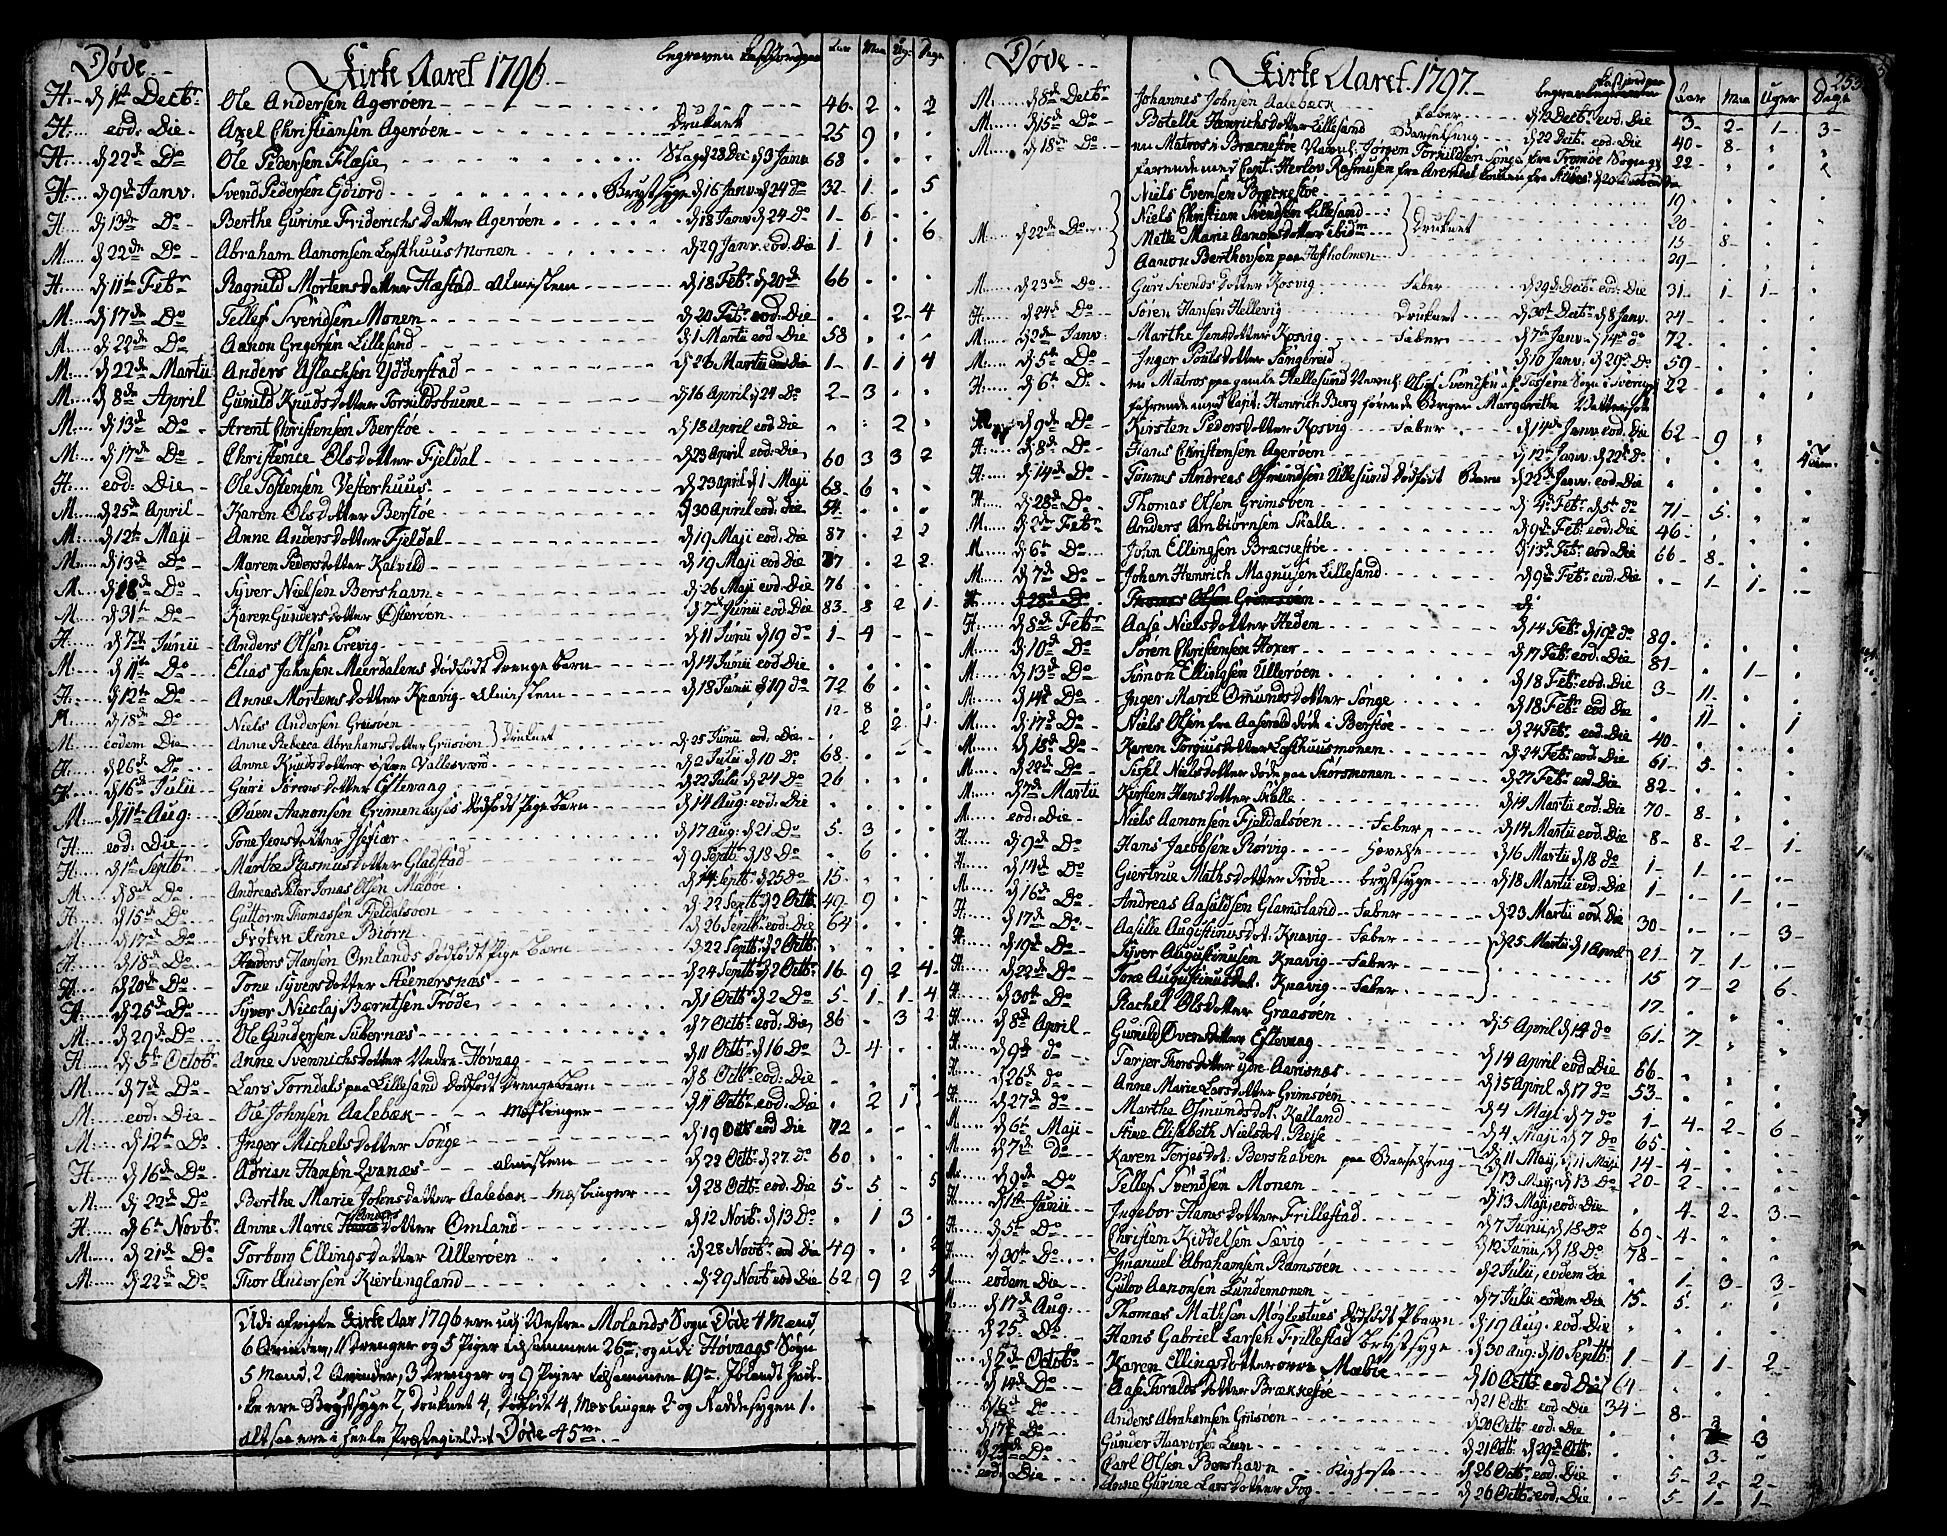 Døde
Kirke Aaret 1796
begraven
Aar Maa Ug. Dage
H. d 1te Decbr Ole Andersen Agerøen 46 2 2
H. eod. Die Axel Christiansen Agerøen Druknet 25 9
H. d 22de Do Ole Pedersen Flæsie Slag d 28 Dec d 3 Janv 68
H. d 9de Janv. Svend Pedersen Brystsyge d 16 Janv d 24 do 32 1 5
H. d 13de Do Berthe Gurine Friderichsdatter Agerøen d 18 Janv d 24 Do 1 6
M. d 22de Do Abraham Aanonsen Lofthuusmonen d 29 Janv. eod. Die 1 1 6
H. d 11te Febr Ragnild Mortensdatter Hæstad Almislem d 18 Febr d 20de 66
M. d 17de Do Tellef Svendsen Monen d 20 Febr eod. Die 2 4
M. d 22de Do Aanon Gregersen Lillesand d 1 Martii eod Die 58
M. d 22de Martii Anders Aslachsen Ydderstad d 26 Martii eod Die 1 1 1 4
M. d 8de April Gunild Knudsdatter Torkildsbuene d 16 April d 24 Do 2 3
M. d 13de Do Arent Christensen Berstøe d 18 April eod Die 2
M. d 17de Do Christence Olsdatter Fjeldal d 23 April eod. Die 60 3 3 2
H. eod. Die Ole Tostensen Vesterhuus d 23 April d 1 Maji 68 6
M. d 25de April Karen Olsdatter Berstøe d 30 April eod. Die 54
M. d 12te Maji Anne Andersdatter Fjeldal d 19 Maji eod. Die 87 2 2
M. d 13de Do Maren Pedersdatter Kalvild d 19 Maji eod Die 77 2 2
M. d 18de Do Syver Nielsen Bershavn d 26 Maji eod Die 76
M. d 31te Do Karen Gundersdatter Østerøen d 7de Junii eod. Die 83 8 2 1
H. d 7de Junii Anders Olsen Trevig d 11 Junii d 19 do 1 4
M. d 11te Do Elias Jahnsen Meerdalens dødfødt Drengebarn d 14 Junii eod Die
H. d 12te Do Anne Mortensdatter Knavig Almislem d 18 Junii d 19 do 72 6
M. d 18de Do Niels Andersen Grüsøen 12 8
M. eodem Die Anne Rebecca Abrahamsdatter Grüsøen Druknet d 25 Junii eod. Die 2 2 1
H. d 26de Do Anne Knudsdatter Vallesverd d 2 Julii d 10 Do 68
H. d 16de Julii Guri Sørensdatter Eftevaag d 22 Julii d 24 Do 26
M. d 11te Aug. Øuen Aanonsen Dødfødt Pigebarn d 14 Aug. eod. Die
H. eod. Die Tone Jensdatter d 17 Aug. d 21 Do 5 3
H. d 1te Septbr Marthe Rasmusdatter Gladstad d 9 Septbr d 18 Do 6
M. d 8de Do Andreas Peter Jonas Olsen Mæbøe d 14 Septbr d 25 Do 15
H. d 15de Do Guttorm Thomassen Fjeldalsøen d 22 Septbr d 2 Octbr 49 9
M. d 17de Do Frøken Anne Biørn d 26 Septbr eod. Die 64
H. d 18de Do Anders Hansen Omlands dødfødt Pige Barn d 22 Septbr d 2 Octbr
H. d 20de Do Tone Syversdatter Steenersnæs d 24 Septbr d 2 Octbr 16 9 2 4
H. d 25de Do Syver Nicolaj Bærntsen Trøde d 1 Octbr d 2 Do 5 1 1 4
M. d 29de Do Ole Gundersen d 7 Octbr eod. Die 86 3 2
H. d 5te Octobr Anne Svennichsdatter Nedre Høvaag d 11 Octbr d 16 Do 3 4
M. d 7de Do Lars Torndals paa Lillesand dødfødt Drengebarn d 8 Octbr eod. Die
M. eod. Die Ole Johnsen Aalebæk Meslinger d 11 Octbr eod Die 2 1
M. d 12te Do Inger Michelsdatter Songe d 19 Octb eod Die 72
H. d 16de Do Adrian Hansen Qvanæs Almislem d 22 Octbr d 27 Do 60
M. d 22de Do Berthe Marie Johnsdatter Aalebæk Meslinger d 28 Octbr eod. Die 5 5 5
H. d 6te Novbr Anne Marie Andersdatter Omland d 12 Novbr d 13 Do 1 3
M. d 21de Do Torborg Ellingsdatter Ullerøen d 28 Novbr eod Die 49 2
M. d 22de Do Thor Andersen Kierlingland d 29 Novbr eod Die 62 9 2 5
Udi afvigte Kirke Aar 1796 ere udj Vestre Molands Sogn Døde 4 Mænd,
6 Qvinder, 11 Drenger og 5 Piger tilsammen 26, og udi Høvaags Sogn
5 Mænd, 2 Qvinder, 3 Drenger og 9 Piger tilsammen 19. Iblandt hvil-
ke ere Brystsyge 2, Druknet 4, dødfødt 4, Meslinger 2 og Raddesygen 1.
altsaa ere i heele Præstegieldet Døde 45
Døde
Kirke Aaret 1797
begraven
Aar Maa Uger Dage
253
M. d 8de Decbr Johannes Johnsen Aalebæck Feber d 12 Decbr eod. Die 3 2 1 3
M. d 15de Do Botelle Henrichsdatter Lillesand Barselseng d 22 Decbr. eod. Die 40 8
M. d 18de Do en Matros i Brækkestøe Navnl. Jørgen Torkildsen Songe fra Tromøe Sogn 22
farende med Capt. Herlov Rasmusen fra Arendal
Niels Evensen Brækkestøe 19
Niels Christian Svendsen Lillesand 20
M. d 22de Do Mette Marie Aanonsdatter ibidm Druknet 15 8
Aanon Berthovsen paa Hofholmen 29
M. d 23de Do Guri Svendsdatter Kosvig Feber d 29de Decbr eod. Die 31 1 1
H. d 24de Do Søren Hansen Hellevig Druknet d 30te Decbr d 8 Janv. 24
M. d 2de Janv. Marthe Jensdatter Kosvig Feber d 7de Janv. d 14de do 72
M. d 5te Do Inger Poulsdatter Tingereid d 16 Janv. d 29de Do 59
H. d 6te Do en Matros paa gamle Hellesund Navnl. Oluf Svendsen af Tossene Sogn i Sverrig 22
farende med Capt. Henrich Berg førende Brigen Margaretha
d 9de Do Kirsten Pedersdatter Kosvig Feber d 14de Janv. eod. Die 62 9
H. d 8de Do Hans Christensen Agerøen d 12te Janv. d 22de Do
H. d 14de Do Tønnes Andreas Osmundsen Ulvesund dødfødt Barn d 22de Janv. eod Die
H. d 28de Do Thomas Olsen Grimsøen d 4de Febr d 5te do 71 5
M. d 2de Febr Anders Arnbiørnsen Skalle d 9de Febr eod. Die 46
M. d 6te Do John Ellingsen Brækkestøe d 13de Febr eod Die 66 8
M. d 7de Do Johan Henrich Magnusen Lillesand d 9de Febr eod. Die 1 1
H. d 28de Do Thomas Olsen Grimsøen
H. d 8de Febr Aase Nielsdatter Heden d 14 Febr d 19de do 89
M. d 10de Do Søren Christensen Hoxer d 17 Febr. eod. Die 81
M. d 13de Do Simon Ellingsen Ullerøen d 18 Febr. eod. Die 3 1
M. d 14de Do Inger Marie Omundsdatter Songe d 18 Febr eod Die 11
M. d 17de Do Niels Olsen fra Aasereid døde i Berstøe d 24 Febr eod. Die 40 11 1
M. d 18de Do Karen Torgiusdatter Lofthuusmonen d 24 Febr. eod Die 61 5
M. d 22de Do Sissel Nielsdatter døde paa Skorsmonen d 27 Febr. eod. Die 82
M. d 7de Martii Kirsten Hansdatter Skalle d 14 Martii eod. Die 70 8
M. eod. Die Niels Aanonsen Fjeldalsøen Feber d 14 Martii eod. Die 8 8 2 1
H. d 9de Do Hans Jacobsen Rørvig Hovelse d 16 Martii d 18 do 1 1
H. d 14de Do Giertrue Mathisdatter Trøde Brystsyge d 18 Martii eod. Die 1 1
M. d 16de Do Andreas Aasuldsen Glamsland Feber d 23 Martii eod. Die 30 3
H. d 17de Do Aasille Augustinusdot. Knavig Feber d 25 Martii d 1 April 21 7 1
H. d 19de Do Syver Augustinusen Knavig Feber 15 7 2 6
H. d 22de Do Tone Augustinusdat. Knavig Feber 17
H. d 30te Do Rachel Olsdatter Graasøen d 5 April d 14 do 61 7
H. d 8de April Gunild Øvensdatter Eftevaag d 14 April eod. Die 66
H. d 9de do Tarjer Thorsdatter ydre Aarisnæs d 15 April d 17 do 53
H. d 26de do Anne Marie Larsdatter Grimsøen d 4 Maji d 7 do 1 4 2 6
H. d 27de do Marthe Osmundsdot. Kalland d 4 Maji d 7 do 65
M. d 6te Maji Stine Elisabeth Nielsdot. Reise d 11 Maij, d 11 Maji 14 4
M. d 7de Do Karen Torjesdot. Bershaven paa Barselseng d 13 Maij, d 13 Do 20 2
M. d 9de Do Tellef Svendsen Monen d 13 Maji, eod. Die 4 2 3
H. d 1te Junii Ingebor Hansdatter Trillestad d 7 Junii, d 18 Do 69 4
H. d 5te Do Christen Kiddelsen Sævig d 12 Junii, d 18 Do 78
H. d 30te Do Imanuel Abrahamsen Ramsøen d 2 Julii, eodem Die 1 3 3
M. eodem Die Gulov Aanonsen Lundemonen d 7 Julii eodem Die 15 5
M. d 17de Aug. Thomas Mathisen Møglestues dødfødt Pbarn d 19 Aug. eod. Die
d 25de Do Hans Gabriel Larsen Trillestad Brystsyge d 30 Aug. d 10 Septbr 1 1 1 2
d 2de Octobr Karen Ellingsdatter øvre Mæbøe d 10 Octb eod Die 64
d 14de Do Aase Tarald​sdatter Brækkestøe d 21 Octb eod Die 34
d 16de Do Anders Abrahamsen Grüsøen d 20 Octb. eod Die 8 3
d 17de Do Gunder d 21 Octb. d 29de Octb. 3
d 23de Do Carl Olsen Bershavn Kighoste d 26 Octb. eod. Die 5 2 2
eod. Die Anne Gurine Larsdatter Fog d 26 Octb. eod. Die 5 1 1